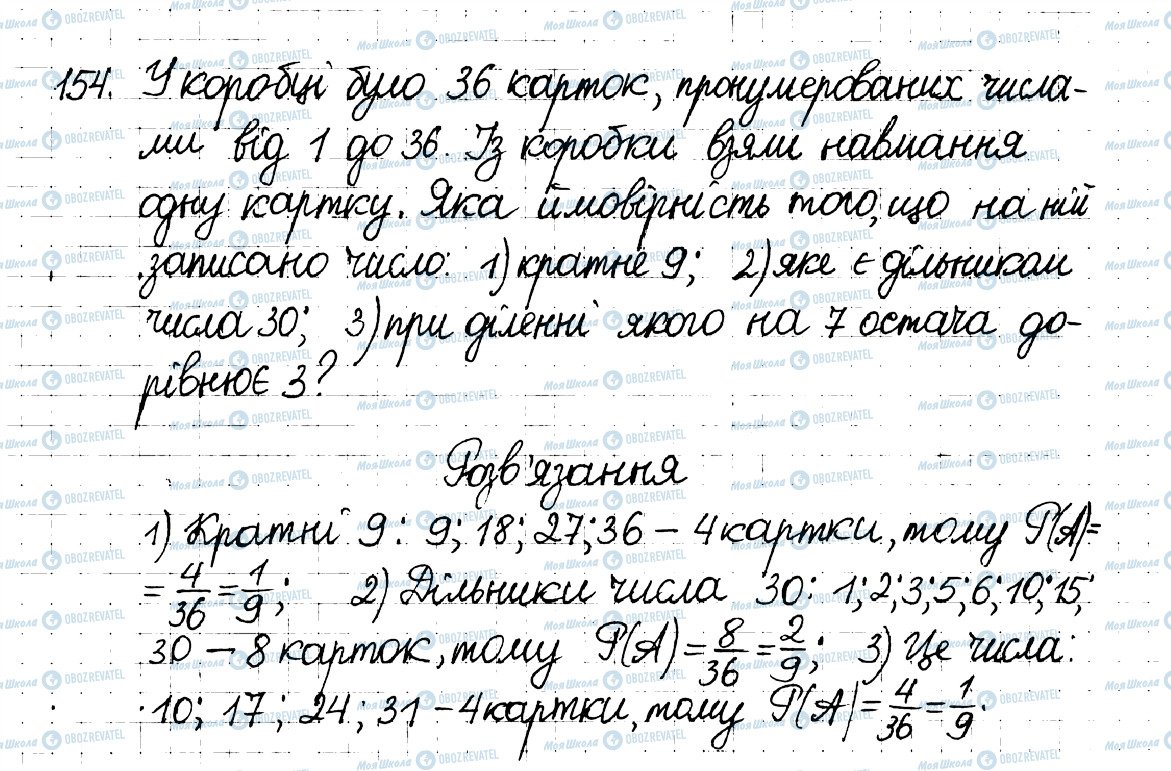 154. У коробці було 36 карток, пронумерованих числа-
ми від 1 до 36. Із коробки взяли навмання
одну картку. Яка ймовірність того, що на ній
записано число: 1) кратне 9; 2) яке є дільником
числа 30; 3) при діленні якого на 7 остача до-
рівнює 3?
Розв'язання
1) Кратні 9: 9; 18; 27; 36 – 4 картки, тому P(A)=
= 4/36 = 1/9; 2) Дільники числа 30: 1; 2; 3; 5; 6; 10; 15;
30 – 8 карток, тому P(A) = 8/36 = 2/9; 3) Це числа:
10; 17; 24; 31 – 4 картки, тому P(A) = 4/36 = 1/9.